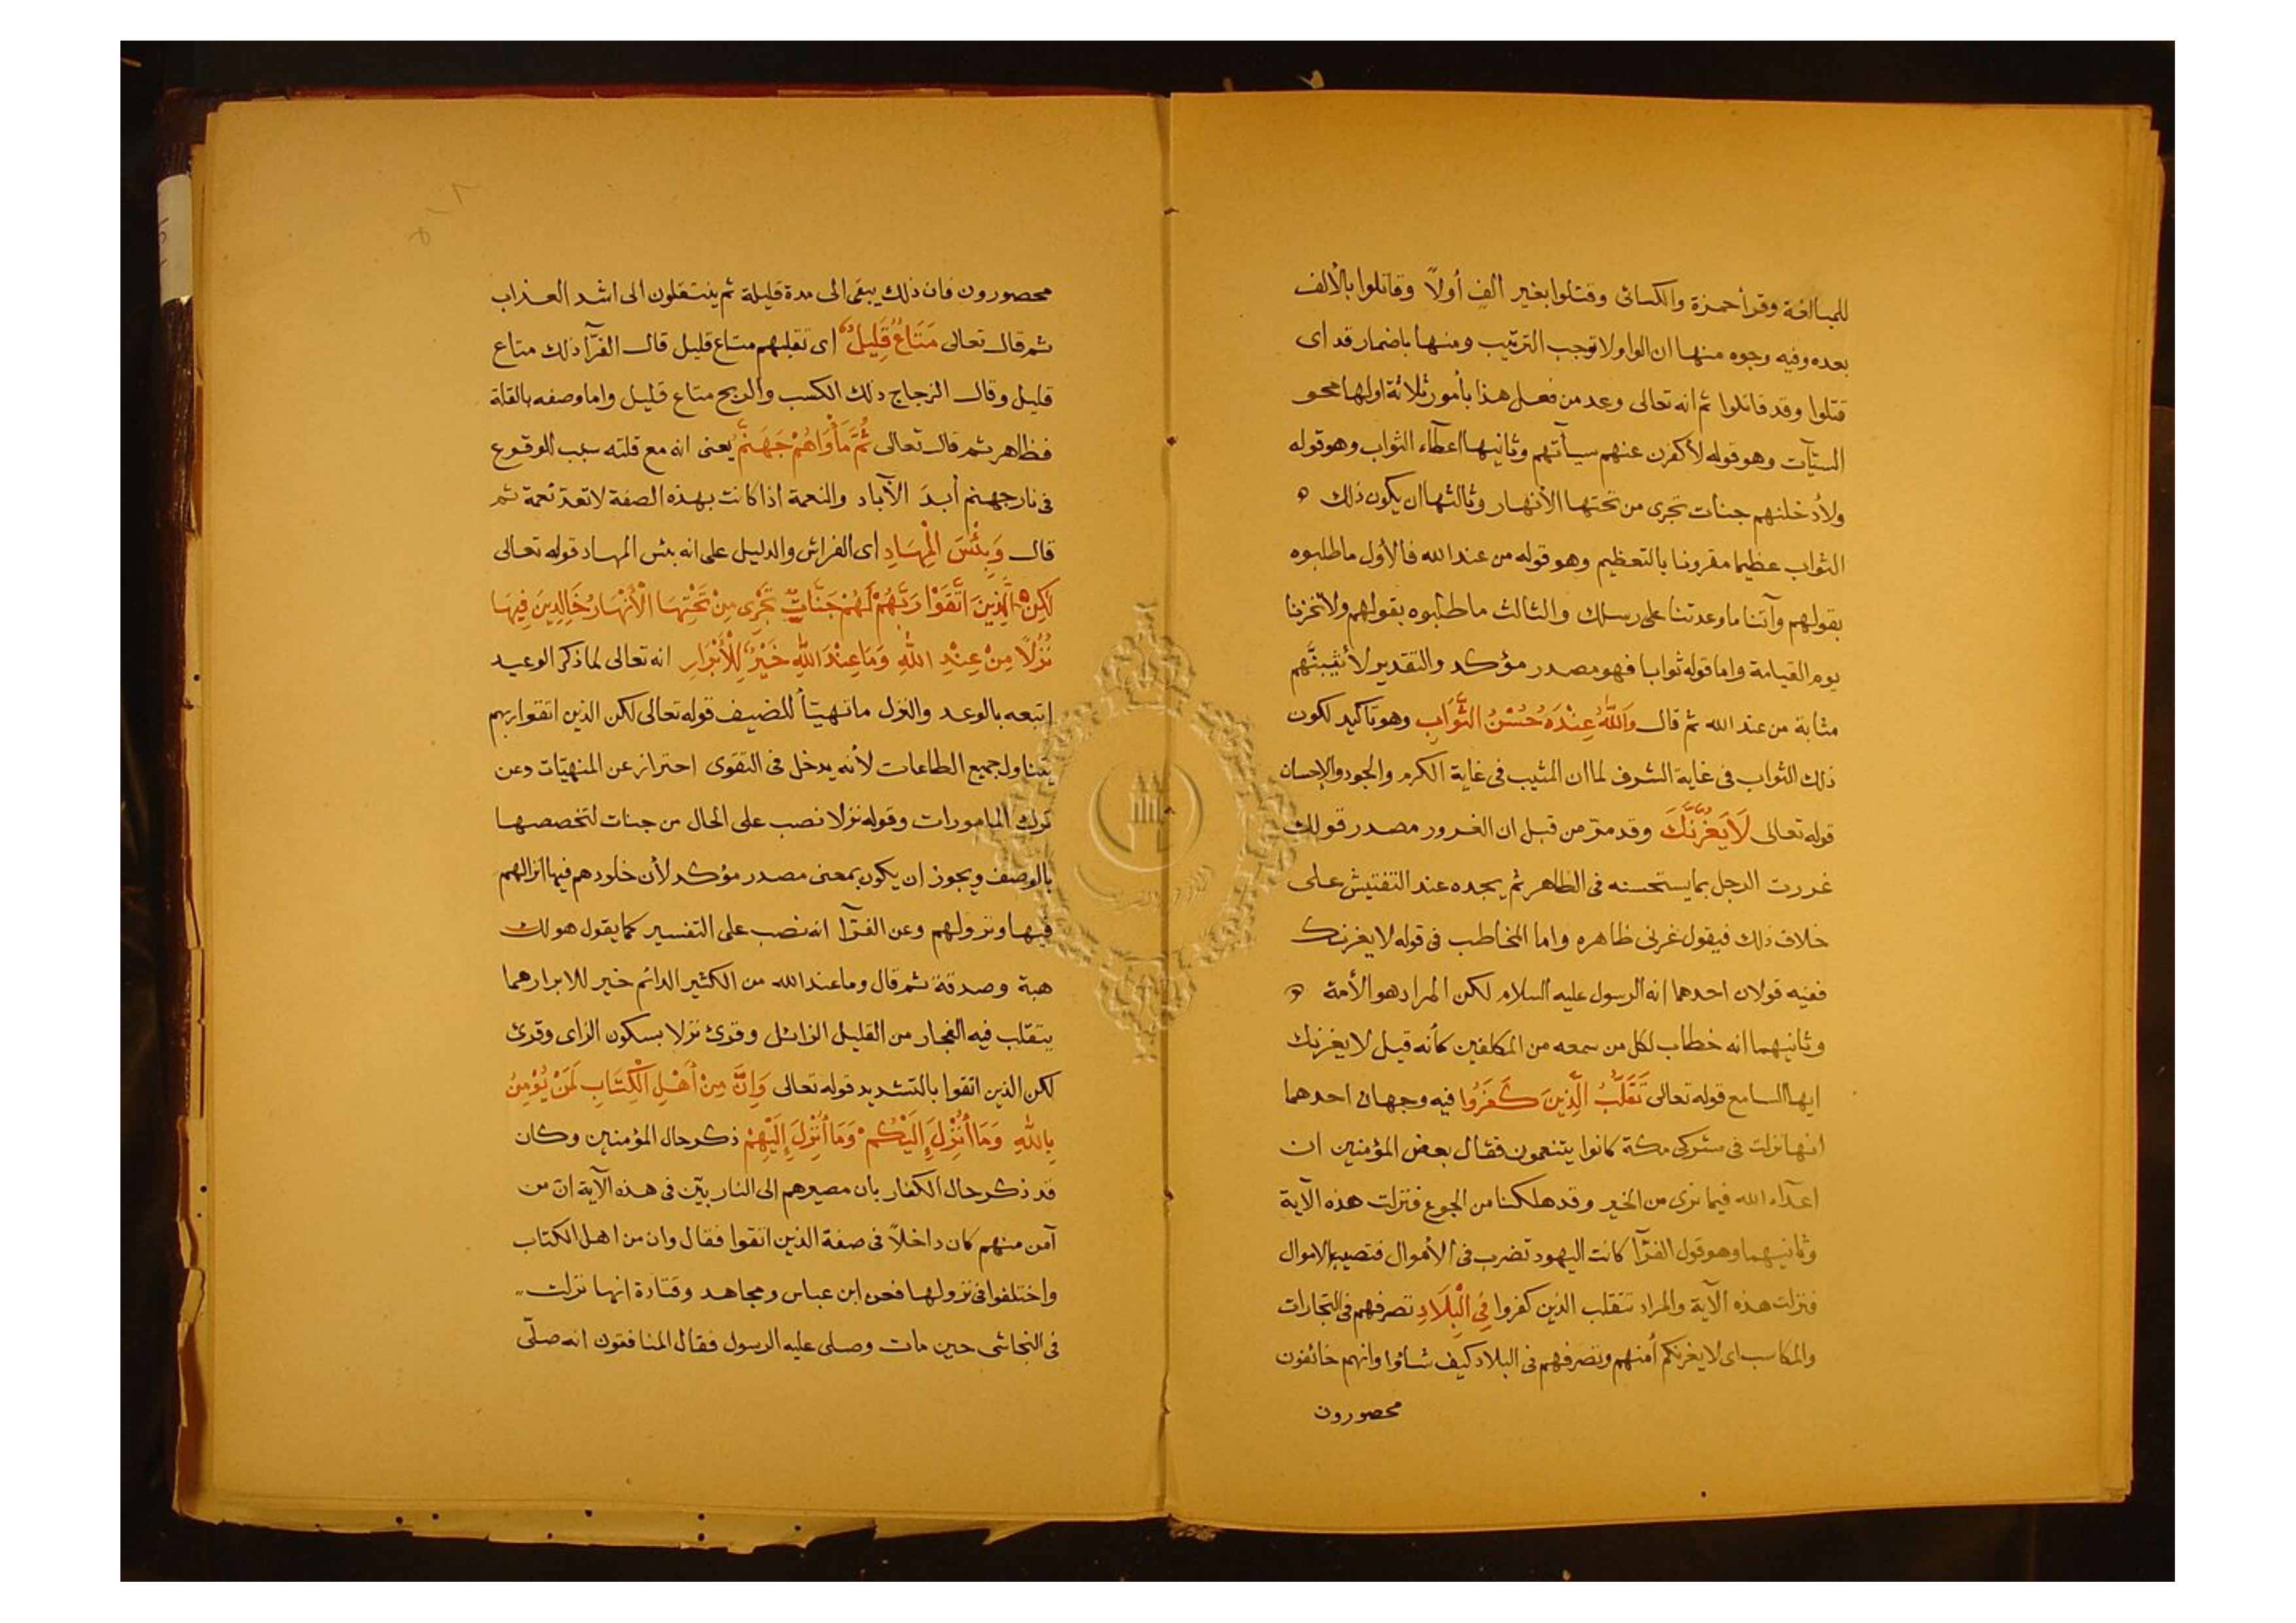 للمبالغة وقرأ حمزة والكسائى وقتلوا بغير الف أولاً وقاتلوا بالألف
بعده وفيه وجوه منها ان الواو لا توجب الترتيب ومنها باضمار قد أى
قتلوا وقد قاتلوا ثم انه تعالى وعد من فعل هذا بأمور ثلاثة اولها محو
السيّآت وهو قوله لأكفرن عنهم سيأتهم وثانيها اعطآء الثواب وهو قوله
ولأدخلنهم جنات تجرى من تحتها الأنهار وثالثها ان يكون ذلك ه
الثواب عظيما مقرونا بالتعظيم وهو قوله من عند الله فالأول ما طلبوه
بقولهم وآتنا ما وعدتنا على رسلك والثالث ما طلبوه بقولهم ولا تخزنا
يوم القيامة واما قوله ثوابا فهو مصدر مؤكد والتقدير لأثيبنّهم
مثابة من عند الله ثم قال وَاللَّهُ عِنْدَهُ حُسْنُ الثَّوَابِ وهو تأكيد لكون
ذلك الثواب فى غاية الشرف لما ان المثيب فى غاية الكرم والجود والإحسان
قوله تعالى لَا يَغُرَّنَّكَ وقد مرّ من قبل ان الغرور مصدر قولك
غررت الرجل بما يستحسنه فى الظاهر ثم يجده عند التفتيش على
خلاف ذلك فيقول غرنى ظاهره واما المخاطب فى قوله لا يغرنك
ففيه قولان احدهما انه الرسول عليه السلام لكن المراد هو الأمة ه
وثانيهما انه خطاب لكل من سمعه من المكلفين كأنه قيل لا يغرنك
ايها السامع قوله تعالى تَقَلُّبُ الَّذِينَ كَفَرُوا فيه وجهان احدهما
انها نزلت فى مشركى مكة كانوا يتنعمون فقال بعض المؤمنين ان
اعدآء الله فيما نرى من الخير وقد هلكنا من الجوع فنزلت هذه الآية
وثانيهما وهو قول الفرّآ كانت اليهود تضرب فى الأموال فتصيب الاموال
فنزلت هذه الآية والمراد تتقلب الذين كفروا فِي الْبِلَادِ تصرفهم فى التجارات
والمكاسب اى لا يغرنكم أمنهم وتصرفهم فى البلاد كيف شاؤا وانهم خائفون
محصورون
محصورون فان ذلك يبقى الى مدة قليلة ثم ينتقلون الى اشد العذاب
ثم قال تعالى مَتَاعٌ قَلِيلٌ اى تقلبهم متاع قليل قال الفرّآ ذلك متاع
قليل وقال الزجاج ذلك الكسب والربح متاع قليل واما وصفه بالقلة
فظاهر ثم قال تعالى ثُمَّ مَأْوَاهُمْ جَهَنَّمُ يعنى انه مع قلته سبب للوقوع
فى نار جهنم أبدَ الآباد والنعمة اذا كانت بهذه الصفة لا تعدّ نعمة ثم
قال وَبِئْسَ الْمِهَادِ أى الفراش والدليل على انه بئس المهاد قوله تعالى
لَكِنِ الَّذِينَ اتَّقَوْا رَبَّهُمْ لَهُمْ جَنَّاتٌ تَجْرِى مِنْ تَحْتِهَا الْأَنْهَارُ خَالِدِينَ فِيهَا
نُزُلًا مِنْ عِنْدِ اللَّهِ وَمَا عِنْدَ اللَّهِ خَيْرٌ لِلْأَبْرَارِ انه تعالى لما ذكر الوعيد
اتبعه بالوعد والنزل ما تهيّأ للضيف قوله تعالى لكن الذين اتقوا ربهم
يتناول جميع الطاعات لأنه يدخل فى التقوى احتراز عن المنهيّات وعن
ترك المامورات وقوله نزلا نصب على الحال من جنات لتخصصها
بالوصف ويجوز ان يكون بمعنى مصدر مؤكد لأن خلودهم فيها انزالهم
فيها ونزولهم وعن الفرّآ انه نصب على التفسير كما يقول هو لك
هبة وصدقة ثم قال وما عند الله من الكثير الدائم خير للابرار مما
يتقلب فيه الفجار من القليل الزائل وقرئ نزلا بسكون الزاى وقرئ
لكن الذين اتقوا بالتشديد قوله تعالى وَإِنَّ مِنْ أَهْلِ الْكِتَابِ لَمَنْ يُؤْمِنُ
بِاللَّهِ وَمَا أُنْزِلَ إِلَيْكُمْ وَمَا أُنْزِلَ إِلَيْهِمْ ذكر حال المؤمنين وكان
قد ذكر حال الكفار بان مصيرهم الى النار بيّن فى هذه الآية انّ من
آمن منهم كان داخلاً فى صفة الذين اتقوا فقال وان من اهل الكتاب
واختلفوا فى نزولها فعن ابن عباس ومجاهد وقتادة انها نزلت
فى النجاشى حين مات وصلى عليه الرسول فقال المنافقون انه صلّى